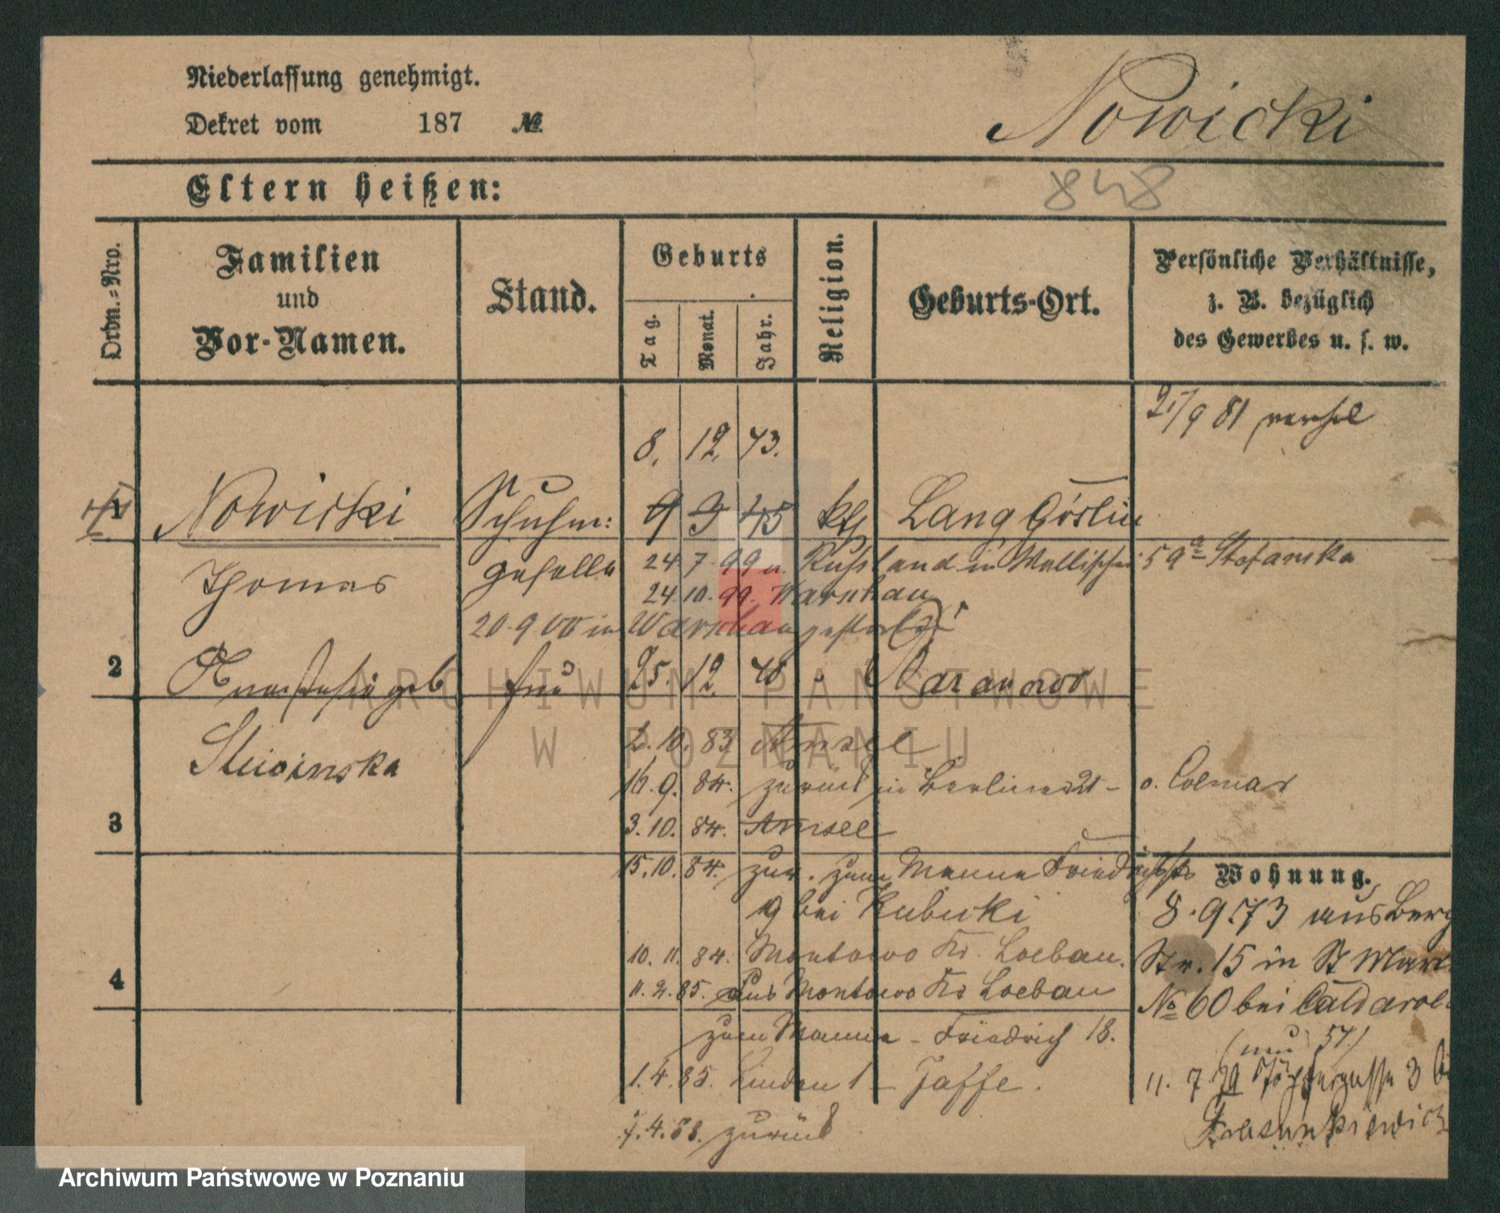 Niederlassung genehmigt.
Dekret vom 187 №
Nowicki
848
Eltern heißen:
Ordn.-Nro.
Familien
und
Vor-Namen.
Stand.
Geburts
Tag.
Monat.
Jahr.
Religion.
Geburts-Ort.
Persönliche Verhältnisse,
z. B. bezüglich
des Gewerbes u. s. w.
21/9 81
8. 12. 43.
1 Nowicki Schuhm: 9 3 45 kth Lang Goslin
Thomas geselle 24 7 99 a. Russland in Wallischei 59a Stefanska
24. 10. 99. Warschau
20 9 00 in Warschau gestorben
2 Anastasia geb frau 25. 12. 48
Sliwinska
2. 10. 83
16. 9. 84. zurück in Berlinerstr o. Colmar
3
3. 10. 84.
15. 10. 84. zur. zum Manne Friedrichstr
9 bei Kubicki
Wohnung.
8. 9. 73 aus Berg
Str. 15 in St Mart
10. 11. 84. Montowo Kr. Loebau.
4
11. 2. 85. aus Montowo Kr Loebau
№ 60 bei
zum Manne - Friedrich 18.
(neu 57)
1. 4. 85. Linden 1 - Jaffe.
11. 7 79
7. 4. 88. zurück
ARCHIWUM PAŃSTWOWE
W POZNANIU
Archiwum Państwowe w Poznaniu